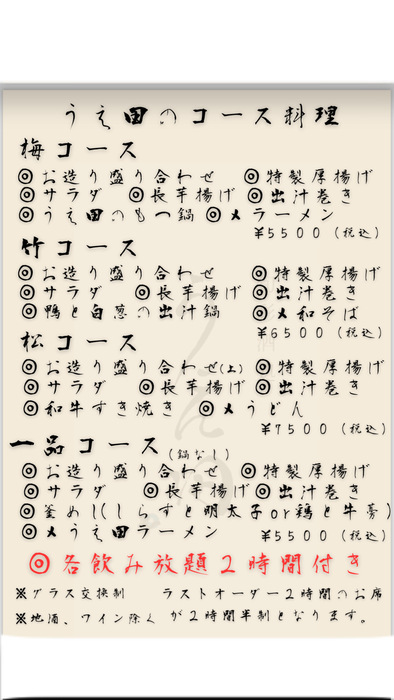 うえ田のコース料理
梅コース
◎お造り盛り合わせ ◎特製厚揚げ
◎サラダ ◎長芋揚げ ◎出汁巻き
◎うえ田のもつ鍋 ◎〆ラーメン
¥5500(税込)
竹コース
◎お造り盛り合わせ ◎特製厚揚げ
◎サラダ ◎長芋揚げ ◎出汁巻き
◎鴨と白葱の出汁鍋 ◎〆和そば
¥6500(税込)
松コース
◎お造り盛り合わせ(上) ◎特製厚揚げ
◎サラダ ◎長芋揚げ ◎出汁巻き
◎和牛すき焼き ◎〆うどん
¥7500(税込)
一品コース(鍋なし)
◎お造り盛り合わせ ◎特製厚揚げ
◎サラダ ◎長芋揚げ ◎出汁巻き
◎釜めし(しらすと明太子or鶏と牛蒡)
◎〆うえ田ラーメン ¥5500(税込)
◎各飲み放題2時間付き
※グラス交換制 ラストオーダー2時間のお席
※地酒、ワイン除く が2時間半制となります。